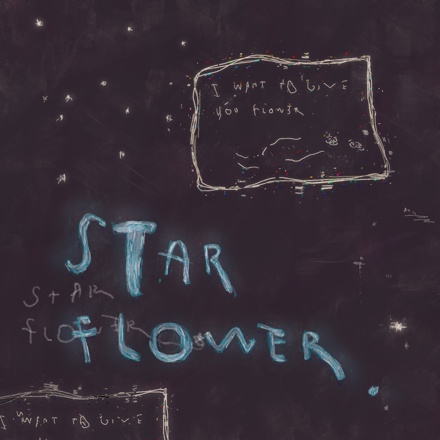 I WANT TO GIVE
you FLOWER
STAR
FLOWER
STAR
FLOWER
I WANT TO GIVE